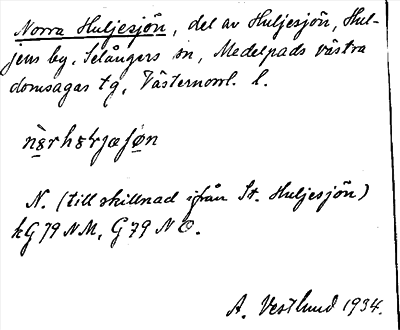 Norra Huljesjön, del av Huljesjön, Hul-
jens by, Selångers sn, Medelpads västra
domsagas tg, Västernorrl. l.
N. (till skillnad ifrån St. Huljesjön)
kG 79 NM, G 79 NO.
A. Vestlund 1934.